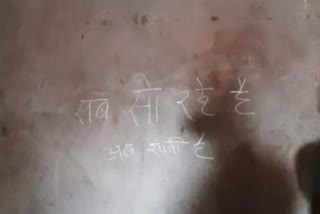 सब सो रहे है
अब शान्ति है